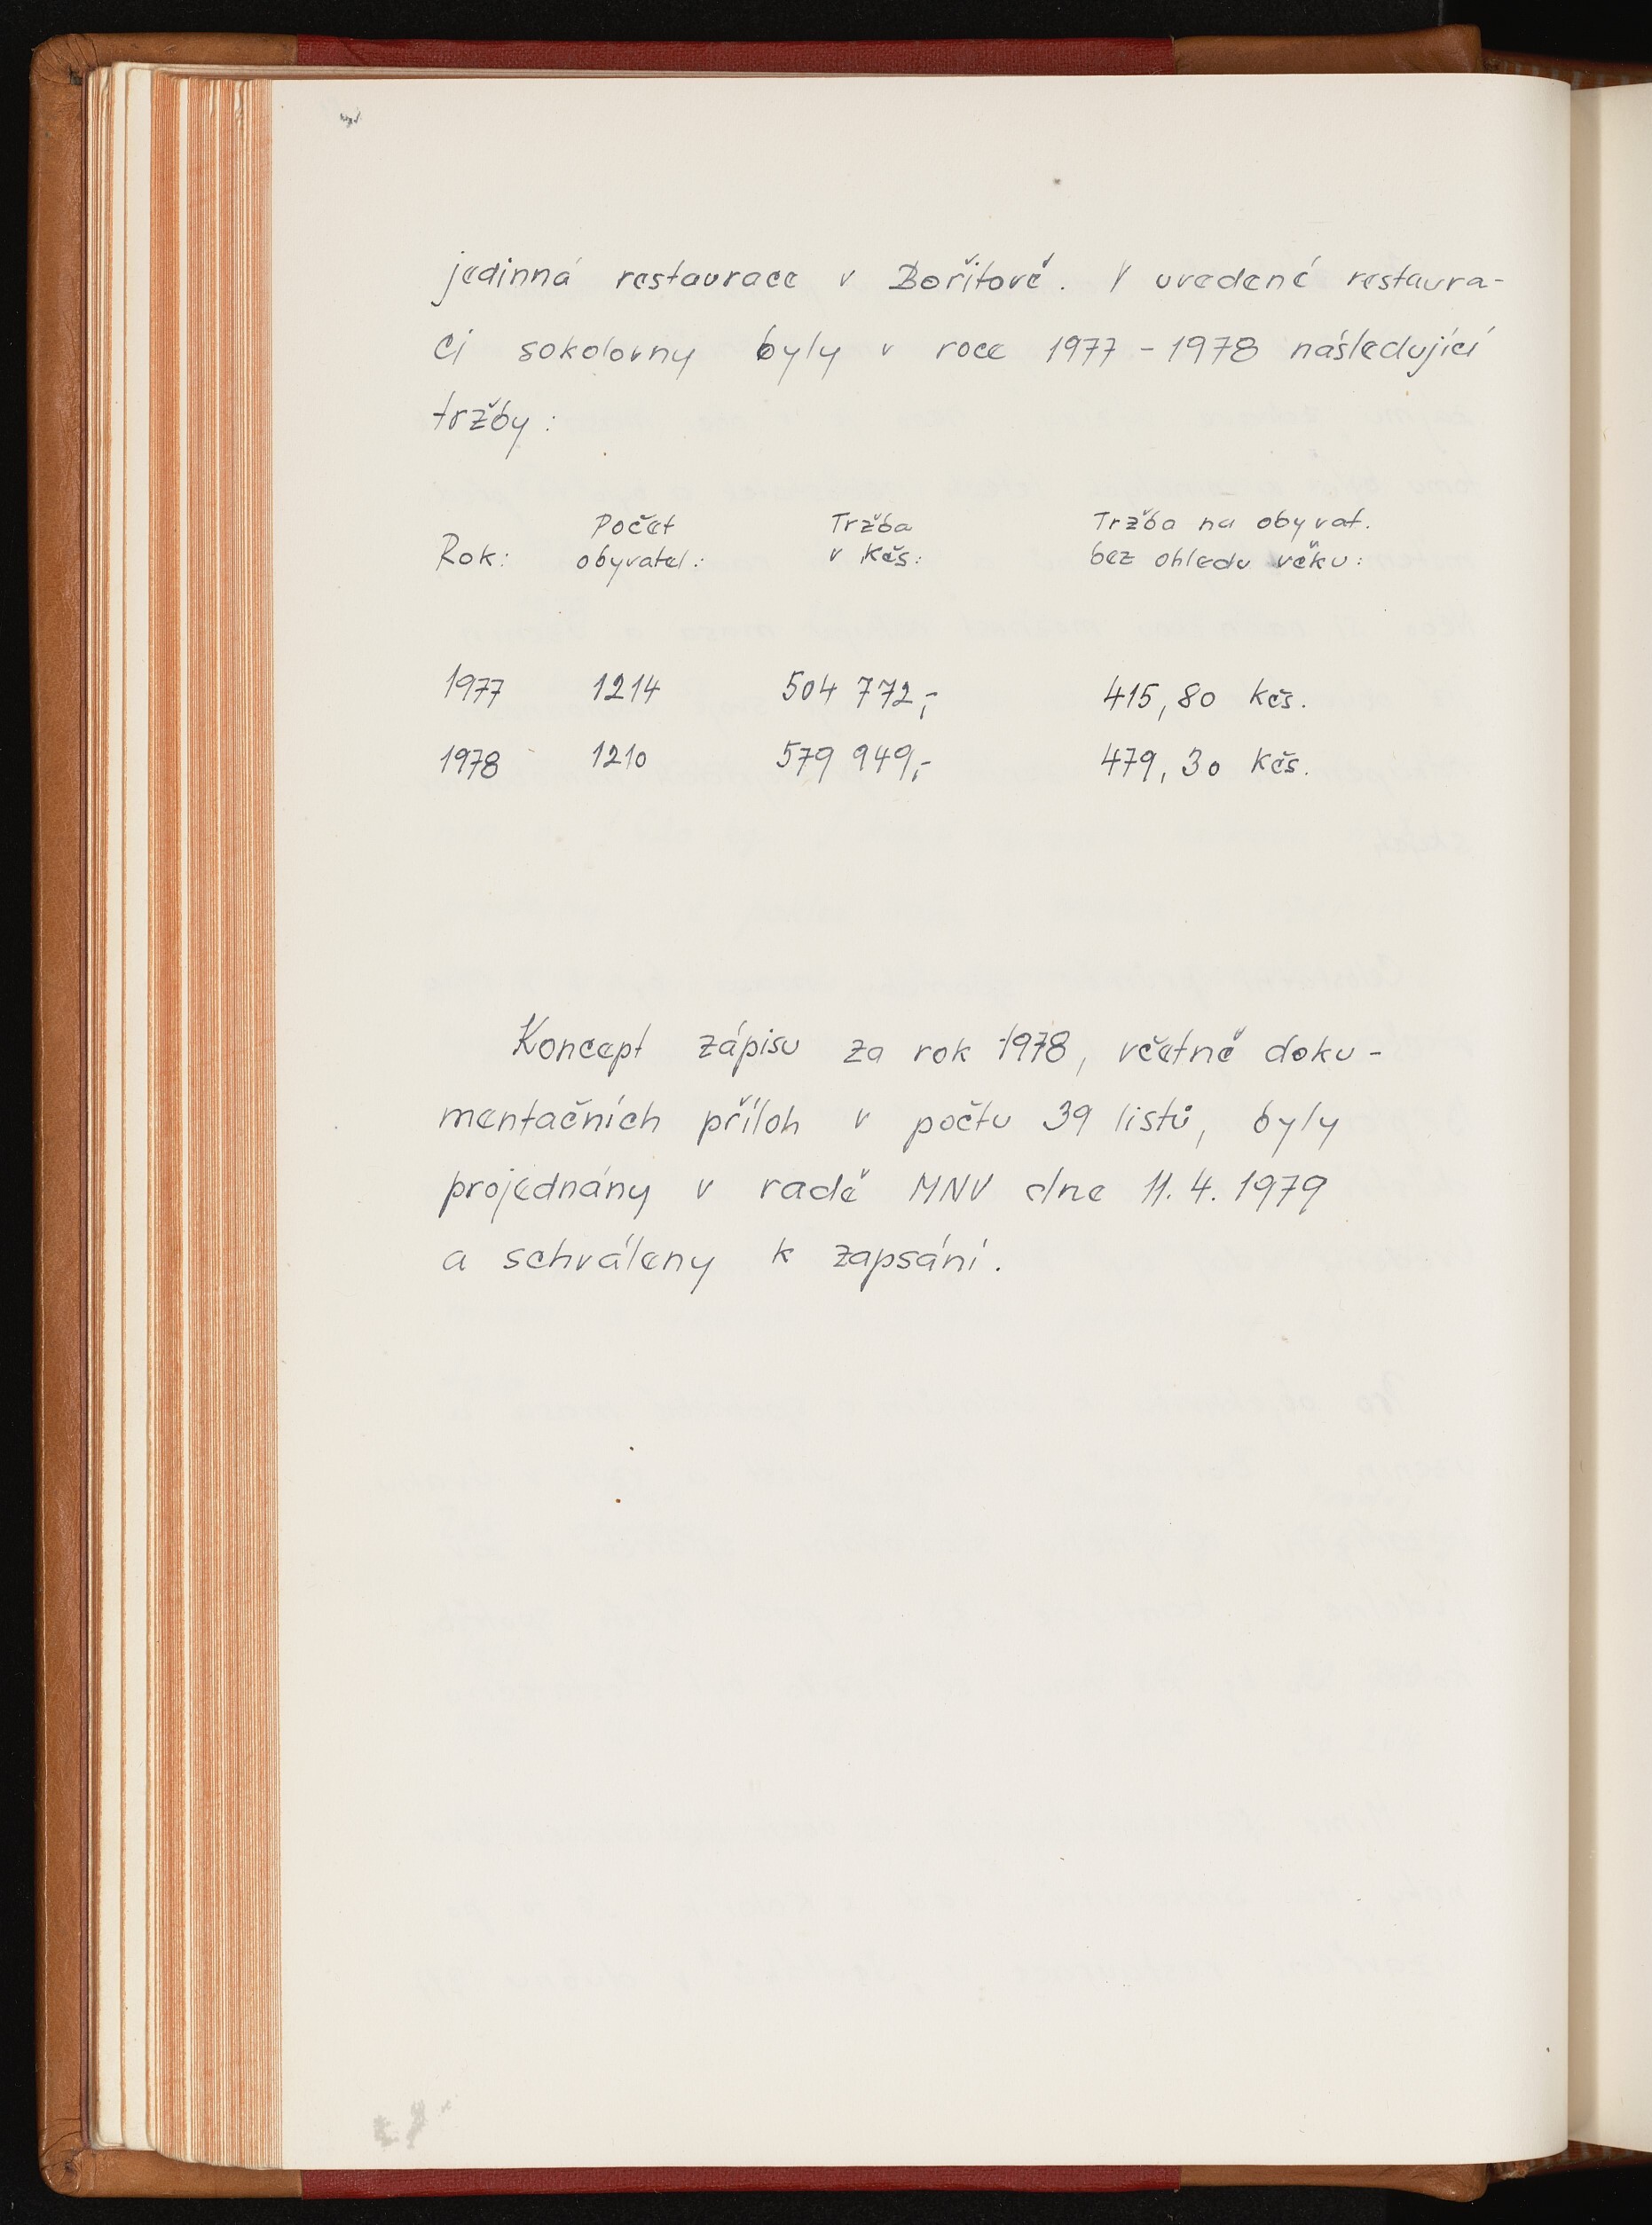 jedinná restaurace v Bořitově. V uvedené restaura-
ci sokolovny byly v roce 1977 - 1978 následující
tržby:
Rok: Počet obyvatel: Tržba v Kčs: Tržba na obyvat. bez ohledu věku:
1977 1214 504 772,- 415,80 Kčs.
1978 1210 579 949,- 479,30 Kčs.
Koncept zápisu za rok 1978, včetně doku-
mentačních příloh v počtu 39 listů, byly
projednány v radě MNV dne 11. 4. 1979
a schváleny k zapsání.